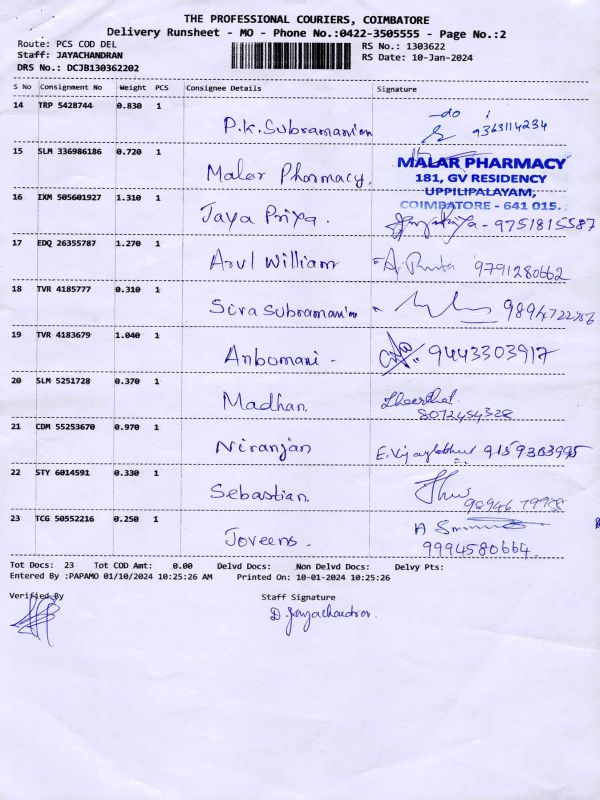 THE PROFESSIONAL COURIERS, COIMBATORE
Delivery Runsheet - MO - Phone No.:0422-3505555 - Page No.:2
Route: PCS COD DEL RS No.: 1303622
Staff: JAYACHANDRAN RS Date: 10-Jan-2024
DRS No.: DCJB130362202
S No Consignment No Weight PCS Consignee Details Signature
14 TRP 5428744 0.830 1 P.K.Subramanian -do 9363114234
15 SLM 336986186 0.720 1 Malar Pharmacy.
MALAR PHARMACY
181, GV RESIDENCY
UPPILIPALAYAM,
COIMBATORE - 641 015.
16 IXM 505601927 1.310 1 Jaya Priya. Jayapriya - 9751815587
17 EDQ 26355787 1.270 1 Arul William 9791280662
18 TVR 4185777 0.310 1 Siva Subramanian
19 TVR 4183679 1.040 1 Anbumani - 9443303917
20 SLM 5251728 0.370 1 Madhan.
8072454328
21 CDM 55253670 0.970 1 Niranjan 9159303995
22 STY 6014591 0.330 1 Sebastian.
23 TCG 50552216 0.250 1 Joveens.
9994580664.
Tot Docs: 23 Tot COD Amt: 0.00 Delvd Docs: Non Delvd Docs: Delvy Pts:
Entered By :PAPAMO 01/10/2024 10:25:26 AM Printed On: 10-01-2024 10:25:26
Verified By Staff Signature
D. Jayachandran.